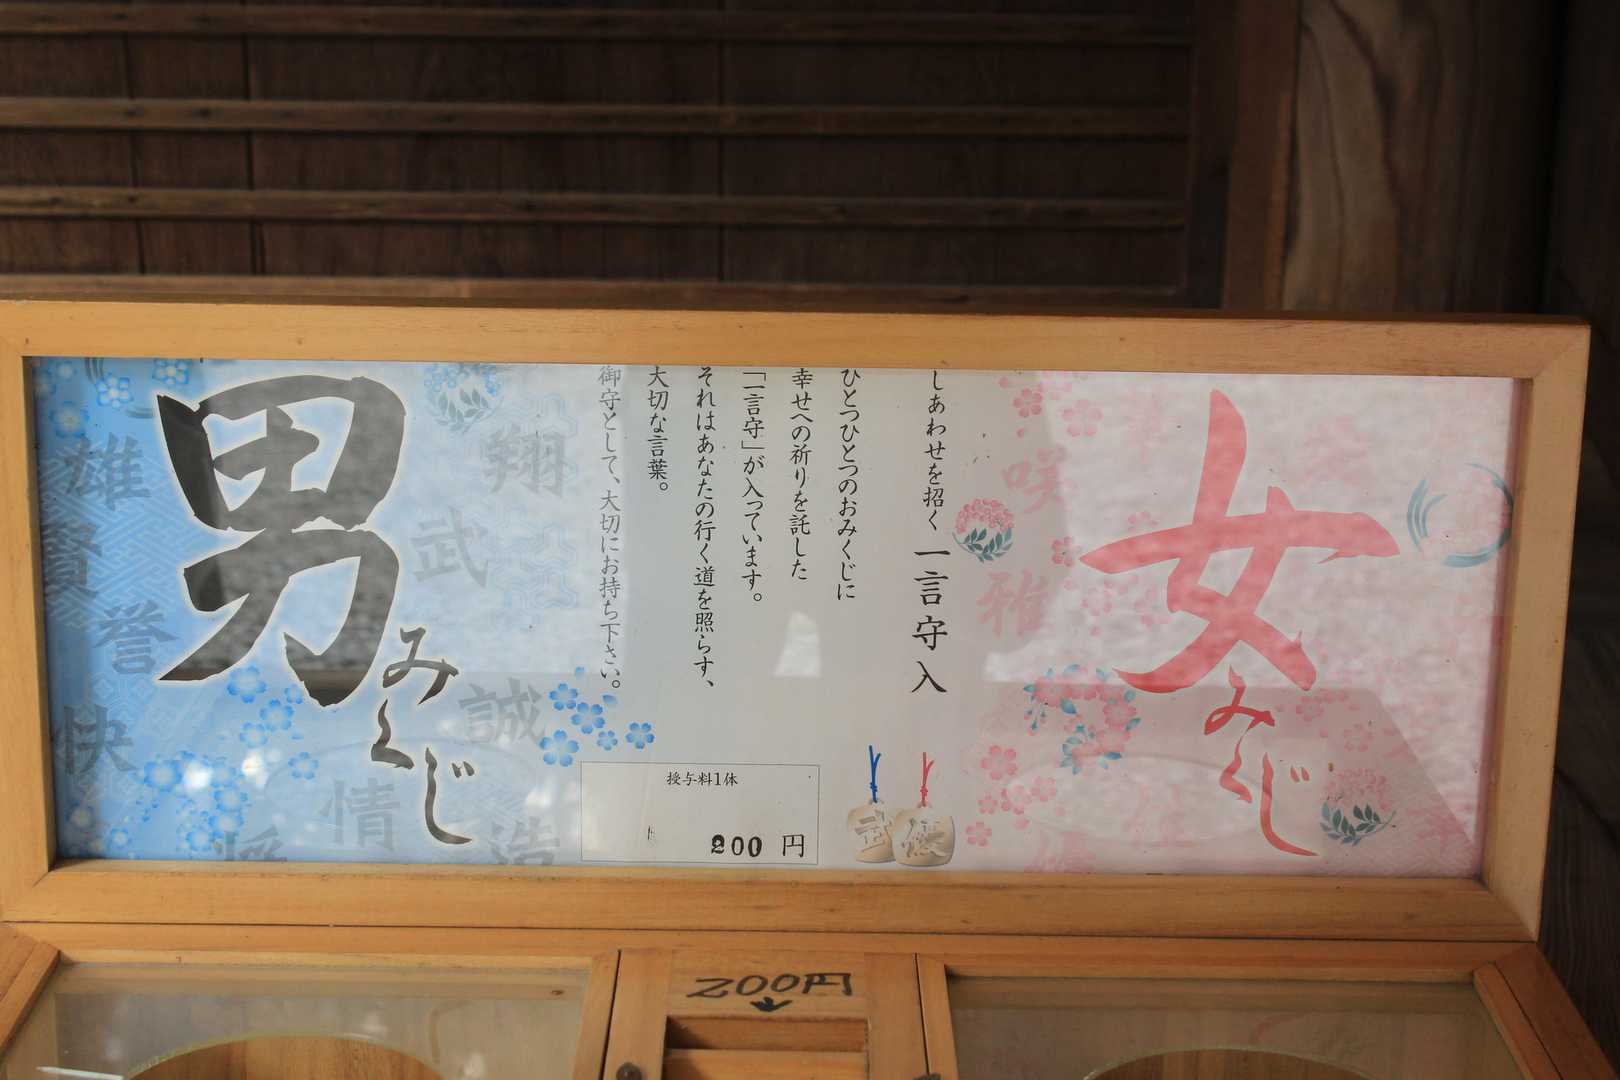 女みくじ
しあわせを招く 一言守入
ひとつひとつのおみくじに
幸せへの祈りを託した
「一言守」が入っています。
それはあなたの行く道を照らす、
大切な言葉。
御守として、大切にお持ち下さい。
男みくじ
咲
雅
翔
武
誠
情
雄
賢
誉
快
武
優
授与料1体
200 円
200円